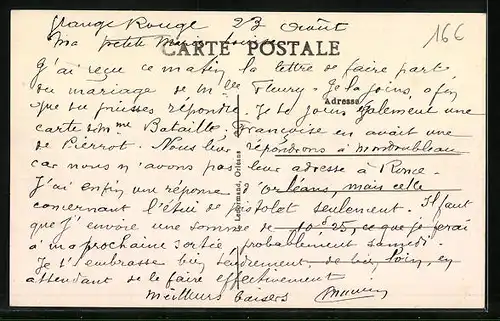 Grange Rouge 23 Août
16C
Ma petite
CARTE POSTALE
J'ai reçu ce matin la lettre de faire part
du mariage de Mlle Fleury. Je la joins, afin
Adresse
que tu puisses répondre. Je te joins également une
carte de Mme Bataille. Françoise en avait une
de Pierrot. Nous leur répondrons à Mondoubleau
car nous n'avons pas leur adresse à Rome.
J'ai enfin une réponse d'Orléans, mais celle
concernant l'étui de pistolet seulement. Il faut
que j'envoie une somme de 10 25, ce que je ferai
à ma prochaine sortie, probablement samedi.
Je t'embrasse bien tendrement, de bien loin, en
attendant de le faire effectivement
Meilleurs baisers
Orléans